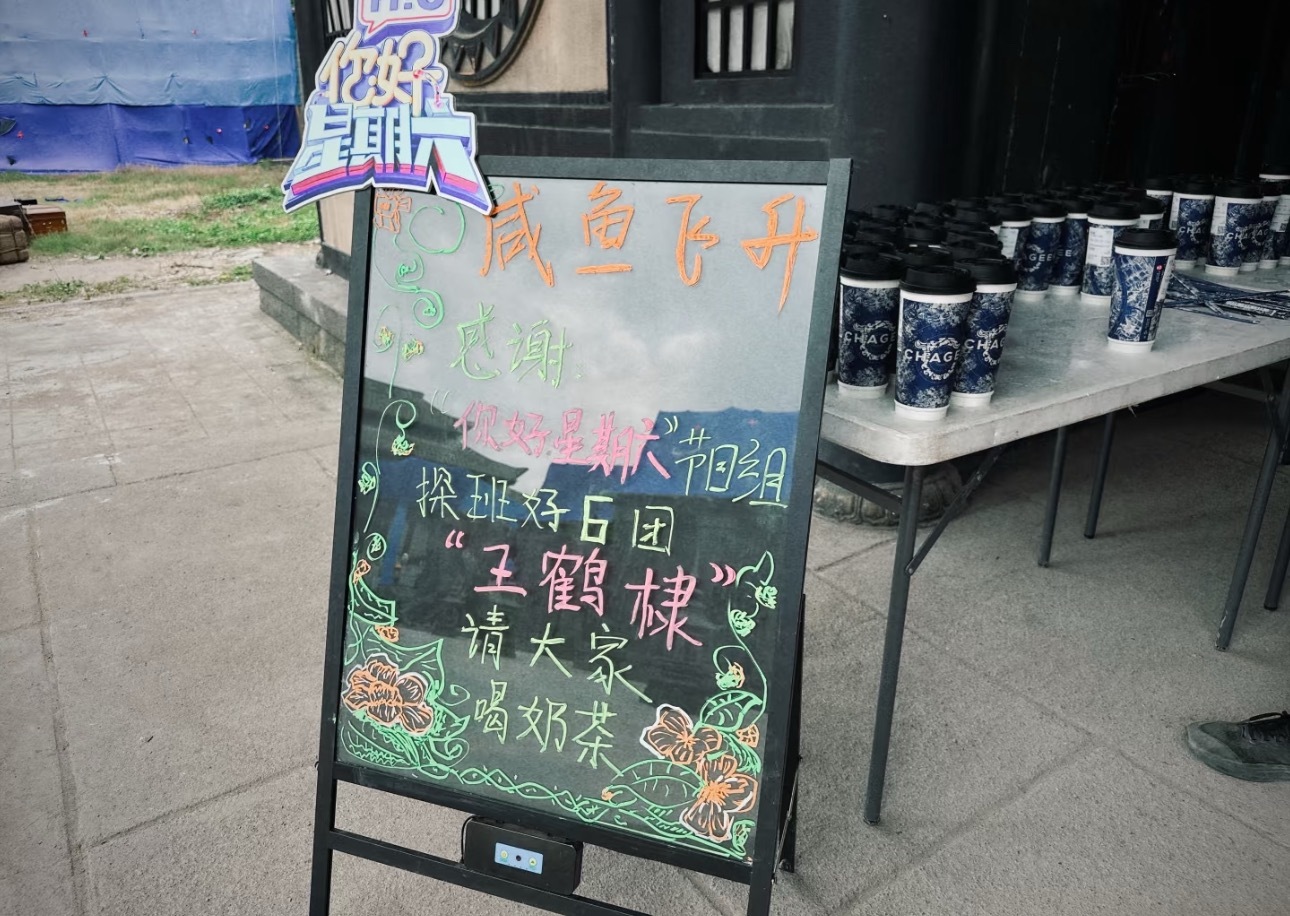 你好
星期六
咸鱼飞升
感谢
“你好星期六”节目组
探班好6团
“王鹤棣”
请大家
喝奶茶
CHAGEE
CHAGEE
CHAGEE